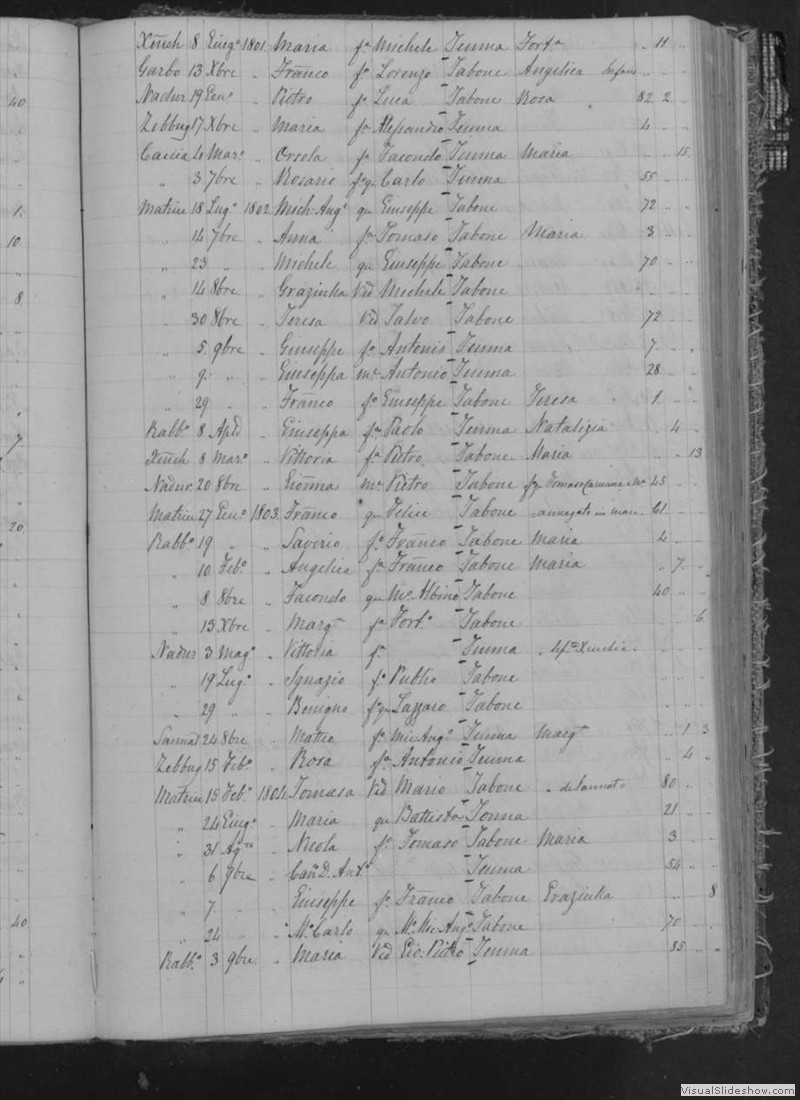 40
1.
10.
8
7
20.
40
Xeuch 8 Giug° 1801 Maria fa Michele Tenma Forta .. 11 ..
Garbo 13 Xbre .. Franco f° Lorenzo Tabone Angelica Infans
Nadur 19 Gen° .. Pietro f° Luca Tabone Rosa 82 2
Zebbug 17 Xbre .. Maria fa Alessandro Tenma 4 ..
Caccia 4 Mar° .. Orsola fa Facondo Tenma Maria .. .. 15
" 3 7bre .. Rosario f° qu Carlo Tenma 55 ..
Matrice 18 Lug° 1802 Mich: Ang° qu Giuseppe Tabone 72 ..
" 14 7bre .. Anna fa Tomaso Tabone Maria 3 ..
" 23 " .. Michele qu Giuseppe Tabone 70 ..
" 14 8bre .. Grazinha Vid Michele Tabone
" 30 8bre .. Teresa Vid Salvo Tabone 72
" 5 9bre .. Giuseppe f° Antonio Tenma 7 ..
" 9 " .. Giuseppa me Antonio Tenma 28 ..
" 29 .. Franco f° Giuseppe Tabone Teresa 1 ..
Rabb° 8 Aple .. Giuseppa fa Paolo Tenma Natalizia .. 4 ..
Xeuch 8 Mar° .. Vittoria fa Pietro Tabone Maria .. .. 13
Nadur 20 8bre .. Gionna me Pietro Tabone Tomaso 45 ..
Matrice 27 Gen° 1803 Franco qu Felice Tabone annegato in mare 61 ..
Rabb° 19 " .. Saverio f° Franco Tabone Maria 4 ..
" 10 Feb° .. Angelica fa Franco Tabone Maria .. 7 ..
" 8 8bre .. Facondo qu M° Albino Tabone 40 ..
" 13 Xbre .. Margta fa Fort° Tabone .. .. 6
Nadur 3 Mag° .. Vittoria fa Tenma
" 19 Lug° .. Ignazio f° Publio Tabone
" 29 " .. Benigno f° qu Lazzaro Tabone
Sannat 24 8bre .. Matteo f° Mic Ang° Tenma Margta .. 1 3
Zebbug 15 Feb° .. Rosa fa Antonio Tenma .. 4 ..
Matrice 15 Feb° 1804 Tomasa Vid Mario Tabone de Sannat 80 ..
" 24 Giug° .. Maria qu Battista Tonna 21 ..
" 31 Ag° .. Nicola f° Tomaso Tabone Maria 3 ..
" 6 9bre .. Can D. Ant° Tenma 54 ..
" 7 .. Giuseppe f° Franco Tabone Grazinha .. .. 8
" 24 .. M° Carlo qu M° Mic Ang° Tabone 70 ..
Rabb° 3 9bre .. Maria Vid Gio: Pietro Tenma 85 ..
VisualSlideshow.com